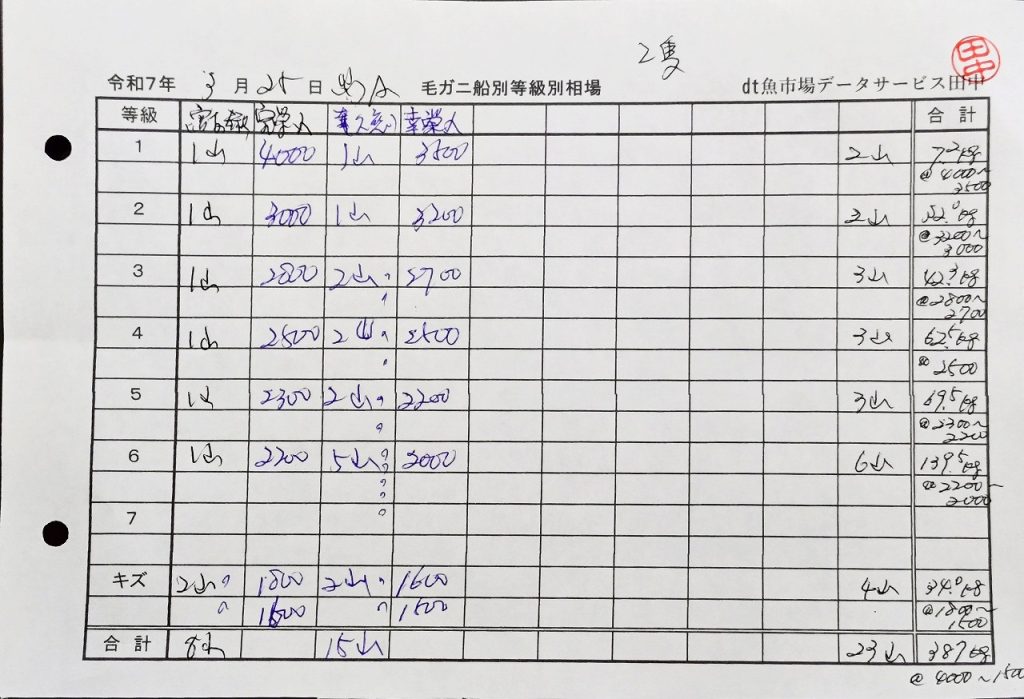 2隻
令和7年 3月25日 毛ガニ船別等級別相場 dt魚市場データサービス田中
田中
等級 栄人 幸栄人 合計
1 1山 4000 1山 3500 2山 7.2kg
@4000〜
3500
2 1山 3000 1山 3200 2山 32.0kg
@3200〜
3000
3 1山 2800 2山〃 2700 3山 42.3kg
〃 @2800〜
2700
4 1山 2500 2山〃 2500 3山 62.5kg
〃 @2500
5 1山 2300 2山〃 2200 3山 69.5kg
〃 @2300〜
2200
6 1山 2200 5山〃 2000 6山 139.5kg
〃 @2200〜
〃 2000
〃
7
キズ 2山〃 1800 2山〃 1600 4山 34.0kg
〃 1500 〃 1500 @1800〜
1500
合計 8山 15山 23山 387kg
@4000〜1500